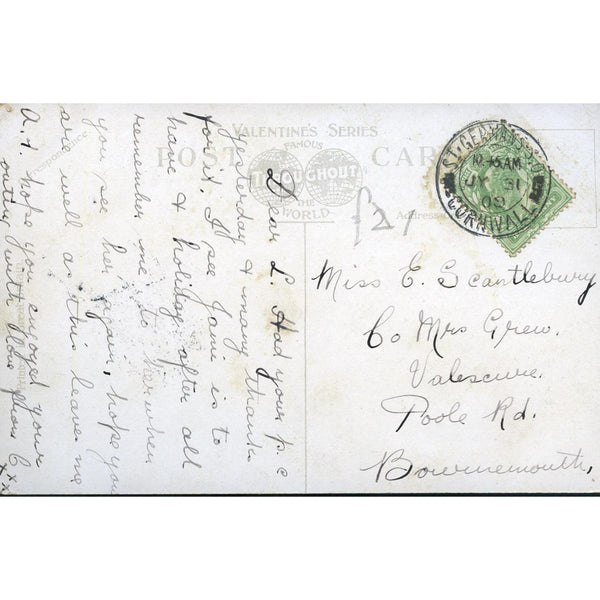 VALENTINE'S SERIES
POST CARD
FAMOUS
THROUGHOUT
THE
WORLD
Correspondence.
Address
ST. GERMANS
10.45AM
31
09
CORNWALL
£2/
Miss E. Scantlebury
C/o Mrs Grew.
Valescure.
Poole Rd.
Bournemouth,
Dear L. Had your p.c
yesterday & many thanks
for it. I see Jane is to
have a holiday after all
remember me to her when
you see her again, hope you
are well as this leaves me
A.1. hope you enjoyed your
outing with love from C
x x x